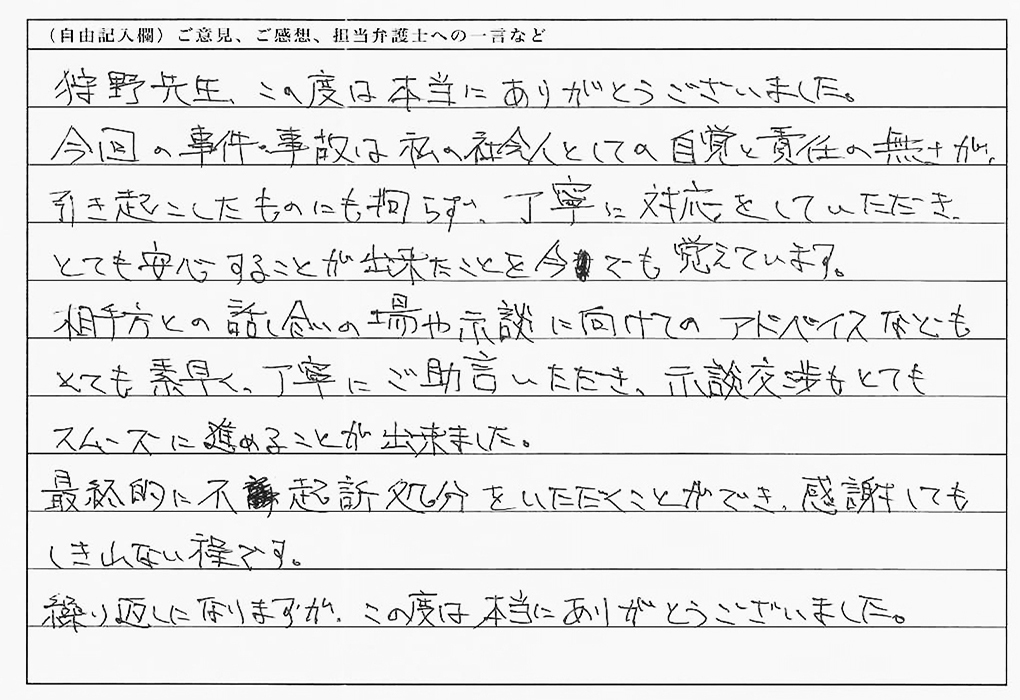 (自由記入欄)ご意見、ご感想、担当弁護士への一言など
狩野先生、この度は本当にありがとうございました。
今回の事件・事故は私の社会人としての自覚と責任の無さが、
引き起こしたものにも拘らず、丁寧に対応をしていただき、
とても安心することが出来たことを今でも覚えています。
相手方との話し合いの場や示談に向けてのアドバイスなども
とても素早く、丁寧にご助言いただき、示談交渉もとても
スムーズに進めることが出来ました。
最終的に不起訴処分をいただくことができ、感謝しても
しき山ない程です。
繰り返しになりますが、この度は本当にありがとうございました。